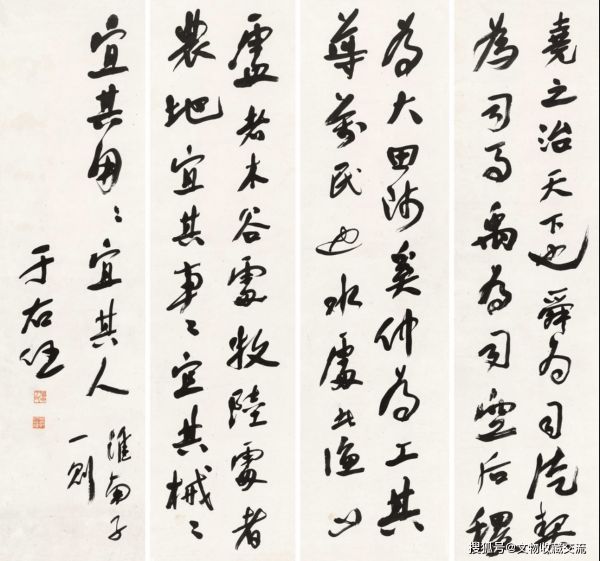 堯之治天下也舜為司徒契
為司馬禹為司空后稷
為大田師奚仲為工其
導萬民也水處者漁山
處者木谷處牧陸處者
農地宜其事〻宜其械〻
宜其用〻宜其人
淮南子
一則
于右任
搜狐号@文物收藏交流